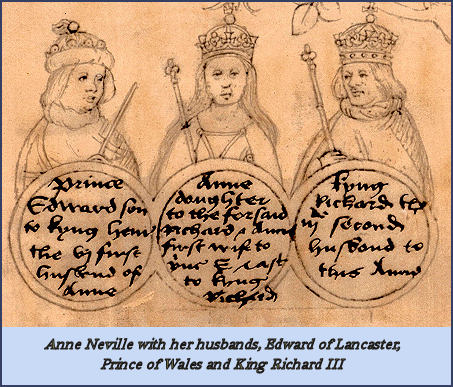 Prince
Edward son
to kyng henri
the vj first
husbond of
Anne
Anne
doughter
to the forsaid
Richard & Anne
first wif to
E last
to kyng
Richard
kyng
Richard the
iij second
husbond to
this Anne
Anne Neville with her husbands, Edward of Lancaster,
Prince of Wales and King Richard III